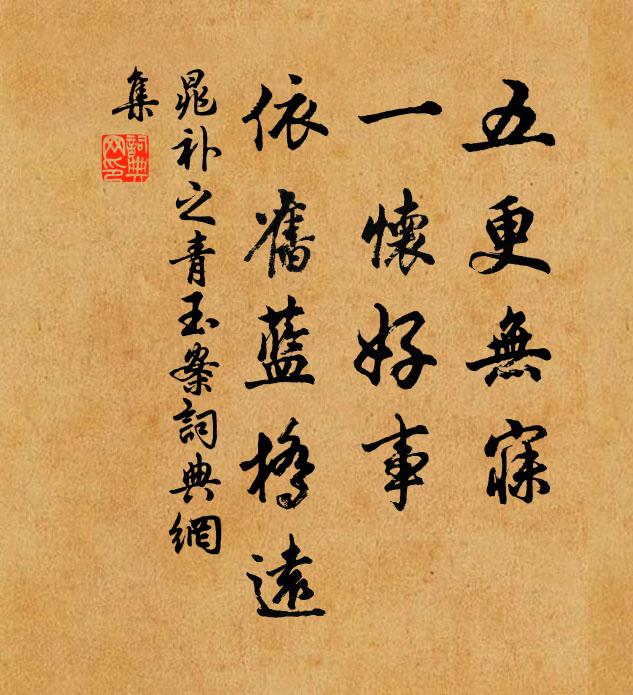 五更無寐
一懷好事
依舊藍橋遠
晁补之青玉案詞典網
集
詞典網印